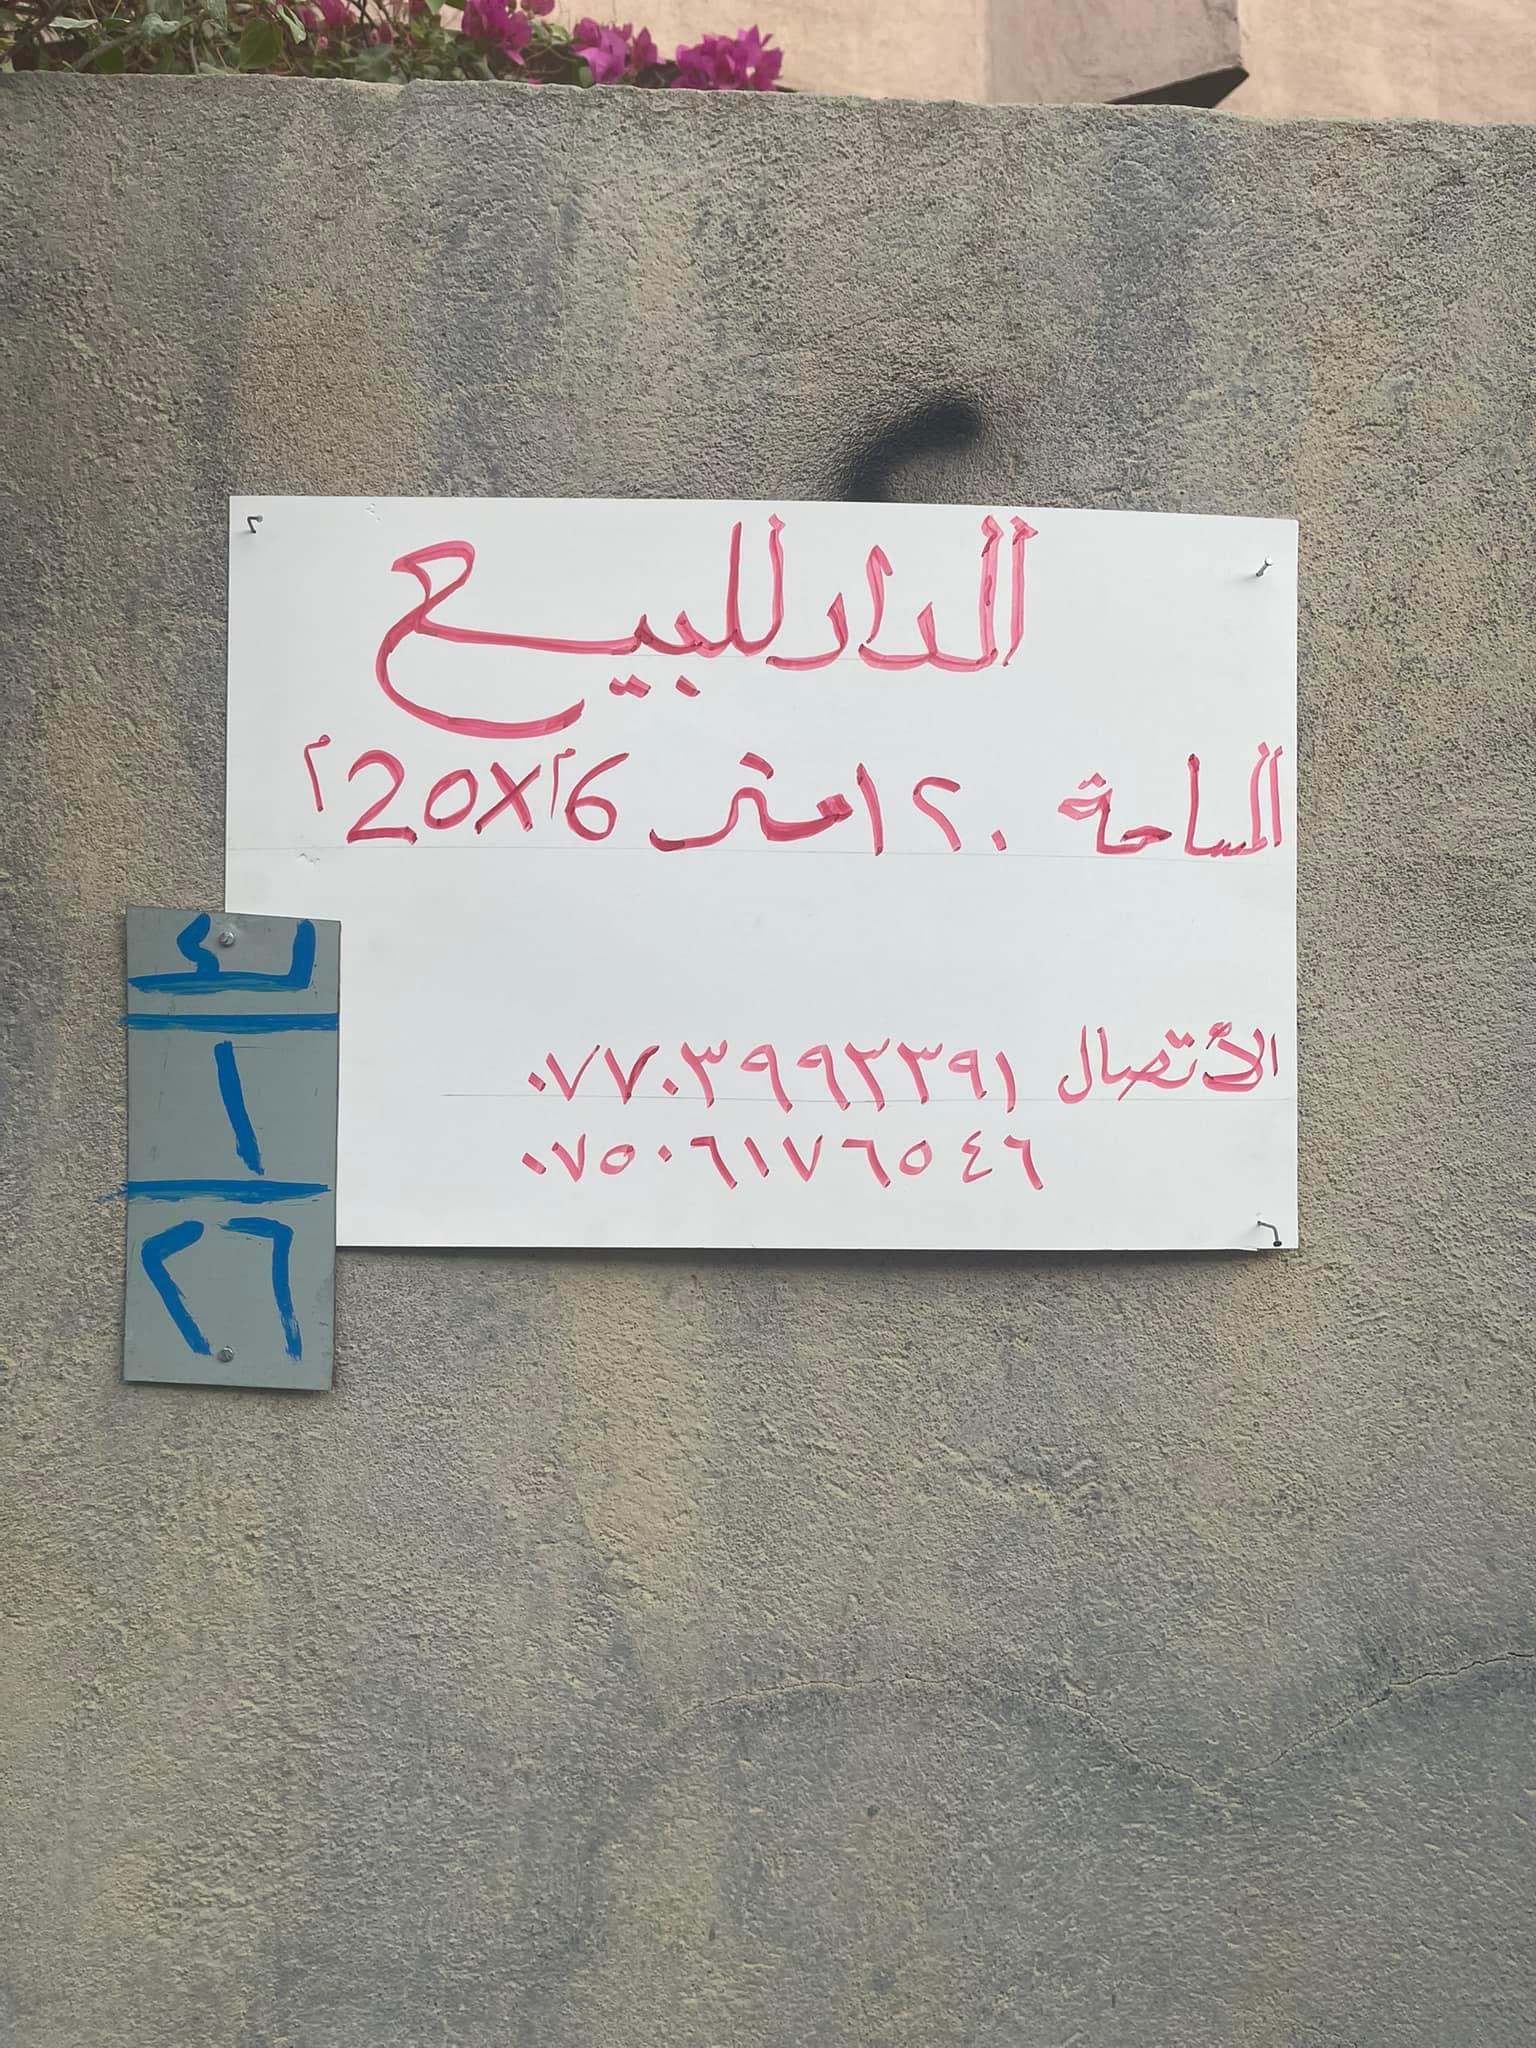 الدار للبيع
المساحة ١٢٠ متر 6م×20م
الأتصال ٠٧٧٠٣٩٩٢٣٩١
٠٧٥٠٦١٧٦٥٤٦
ك
١
٢٦